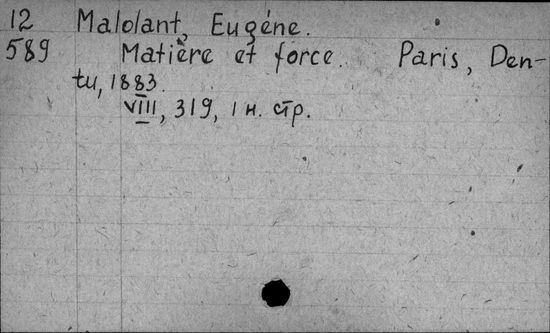 12 Malolant, Eugéne.
589 Matière et force. Paris, Den-
tu, 1883.
VIII, 319, 1 н. стр.